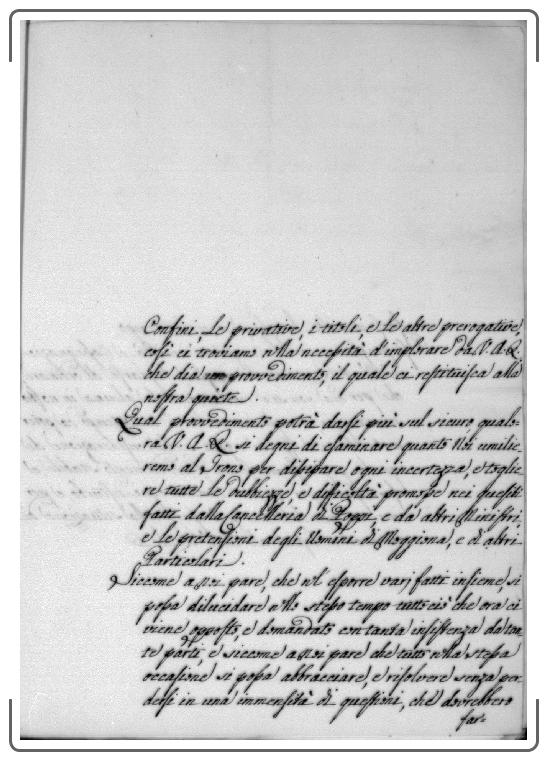 Confini, le privative, i titoli, e le altre prerogative,
così ci troviamo nella necessità d'implorare da V. A. R.
che dia un provvedimento, il quale ci restituisca alla
nostra quiete.
Qual provvedimento potrà darsi più sul sicuro, qualo=
ra V. A. R. si degni di esaminare quanto Noi umilie=
remo al Trono per dissipare ogni incertezza, e toglie
re tutte le dubbiezze, e difficoltà promosse nei quesiti
fatti dalla Cancelleria di Poppi, e da altri Ministri,
e le pretensioni degli Uomini di Moggiona, e di altri
Particolari.
Siccome a noi pare, che nel esporre varj fatti insieme, si
possa dilucidare nello stesso tempo tutto ciò che ora ci
viene opposto, e domandato con tanta insistenza da tan
te parti, e siccome a noi pare che tutto nella stessa
occasione si possa abbracciare, e risolvere senza per
dersi in una immensità di questioni, che dovrebbero
far=